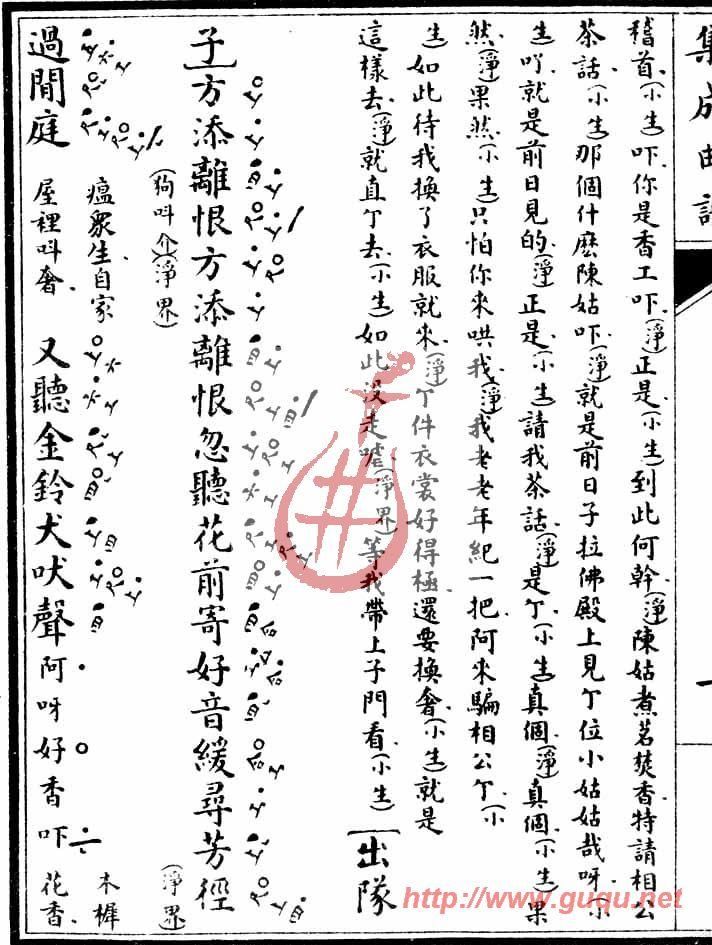 集成曲譜
稽首(小生)吓你是香工吓(淨)正是(小生)到此何幹(淨)陳姑煮茗焚香特請相公
茶話(小生)那個什麽陳姑吓(淨)就是前日子拉佛殿上見亇位小姑姑哉呀(小
生)吖就是前日見的(淨)正是(小生)請我茶話(淨)是亇(小生)真個(淨)真個(小生)果
然(淨)果然(小生)只怕你來哄我(淨)我老老年紀一把阿來騙相公亇(小
生)如此待我換了衣服就來(淨)亇件衣裳好得極還要換奢(小生)就是
這樣去(淨)就直亇去(小生)如此没走嚜(淨界)等我帶上子門看(小生)出隊
子方添離恨方添離恨忽聽花前寄好音緩尋芳徑(淨界)
(狗呌介)(淨界)
過閒庭瘟衆生自家屋裡呌奢又聽金鈴犬吠聲阿呀好香吓木樨花香
http://www.guqu.net